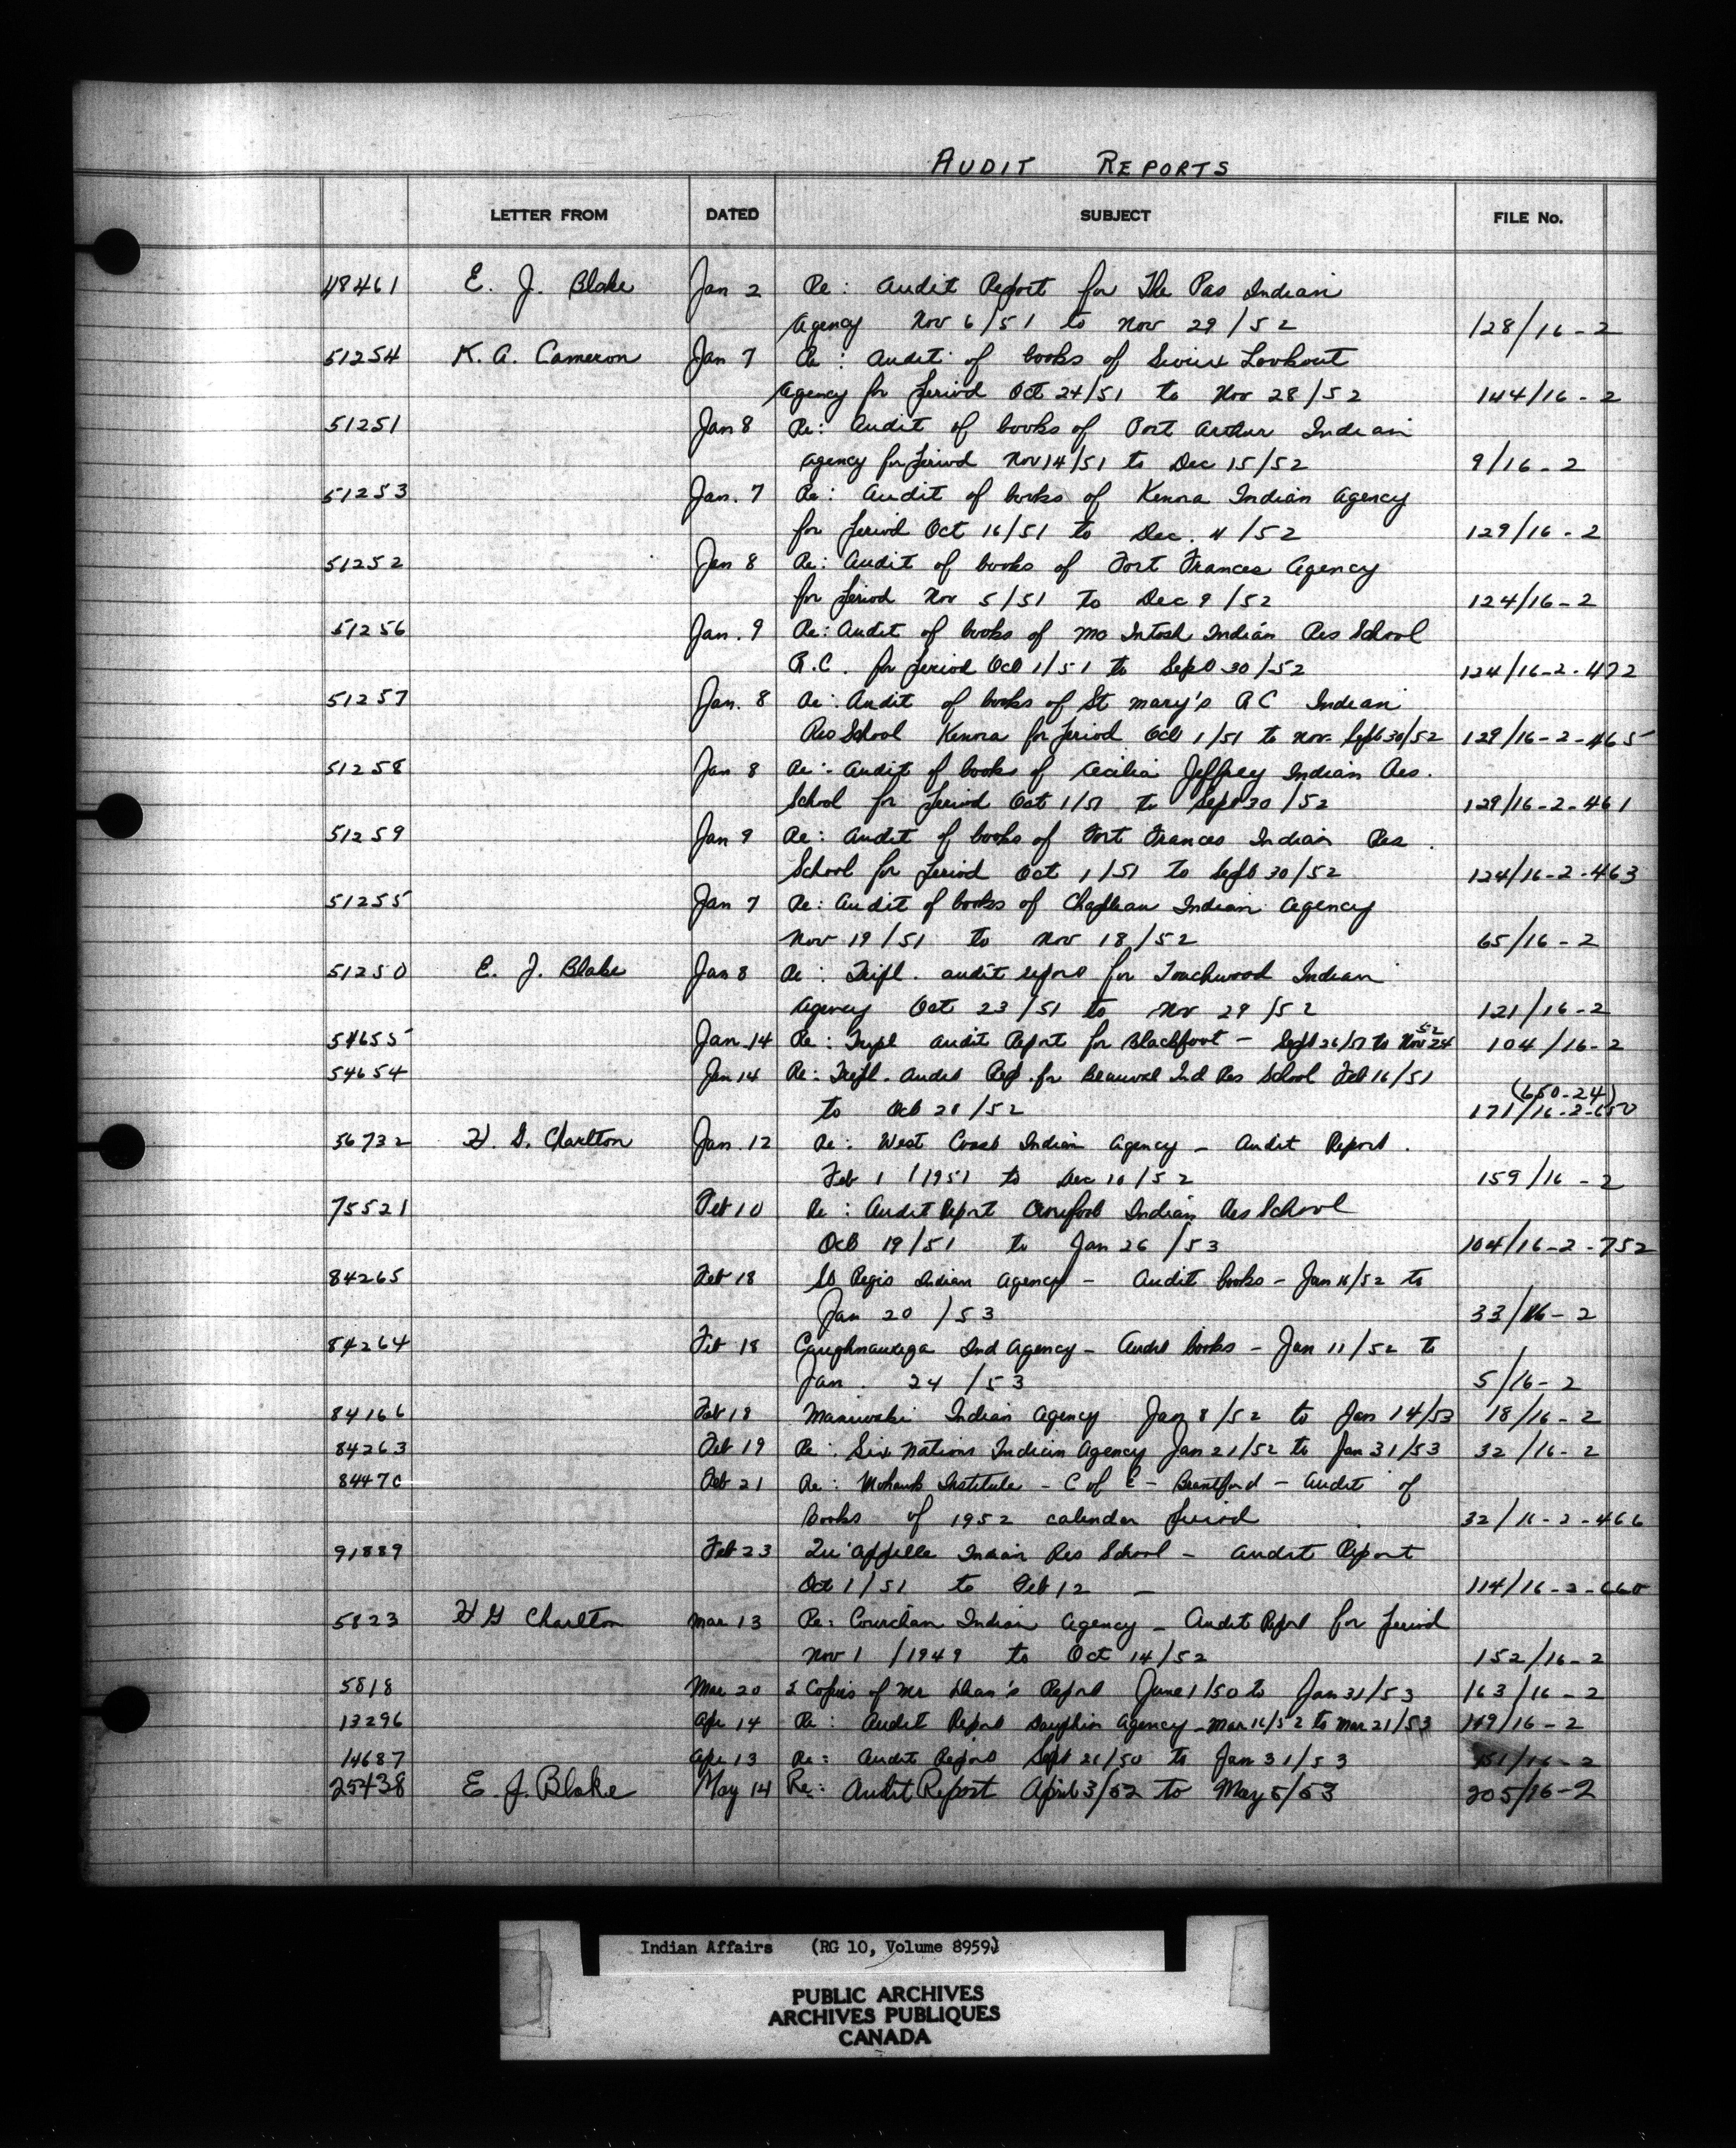 AUDIT REPORTS
LETTER FROM DATED SUBJECT FILE No.
48461 E. J. Blake Jan 2 Re: Audit Report for The Pas Indian
Agency Nov 6/51 to Nov 29/52 128/16-2
51254 K. A. Cameron Jan 7 Re: Audit of books of Sioux Lookout
Agency for period Oct 24/51 to Nov 28/52 144/16-2
51251 Jan 8 Re: Audit of books of Port Arthur Indian
Agency for period Nov 14/51 to Dec 15/52 9/16-2
51253 Jan. 7 Re: Audit of books of Kenora Indian Agency
for period Oct 16/51 to Dec. 4/52 129/16-2
51252 Jan 8 Re: Audit of books of Fort Frances Agency
for period Nov 5/51 to Dec 9/52 124/16-2
51256 Jan. 9 Re: Audit of books of Mc Intosh Indian Res School
R.C. for period Oct 1/51 to Sept 30/52 124/16-2-472
51257 Jan. 8 Re: Audit of books of St Mary's R C Indian
Res School Kenora for period Oct 1/51 to Nov. Sept 30/52 129/16-2-465
51258 Jan 8 Re: Audit of books of Cecilia Jeffrey Indian Res.
School for period Oct 1/51 to Sept 30/52 129/16-2-461
51259 Jan 9 Re: Audit of books of Fort Frances Indian Res
School for period Oct 1/51 to Sept 30/52 124/16-2-463
51255 Jan 7 Re: Audit of books of Chapleau Indian Agency
Nov 19/51 to Nov 18/52 65/16-2
51250 E. J. Blake Jan 8 Re: Tripl. audit report for Touchwood Indian
Agency Oct 23/51 to Nov 29/52 121/16-2
54655 Jan 14 Re: Tripl Audit Report for Blackfoot - Sept 26/51 to Nov 24 52 104/16-2
54654 Jan 14 Re: Tripl. Audit Rep. for Beauval Ind Res School Feb 16/51
(650-24)
to Oct 28/52 171/16-2-650
56732 H. G. Charlton Jan. 12 Re: West Coast Indian Agency - Audit Report.
Feb 1/1951 to Dec 10/52 159/16-2
75521 Feb 10 Re: Audit Report Crowfoot Indian Res School
Oct 19/51 to Jan 26/53 104/16-2-752
84265 Feb 18 St Regis Indian Agency - Audit books - Jan 16/52 to
Jan 20/53 33/16-2
84264 Feb 18 Caughnawaga Ind Agency - Audit books - Jan 11/52 to
Jan. 24/53 5/16-2
84166 Feb 18 Maniwaki Indian Agency Jan 8/52 to Jan 14/53 18/16-2
84263 Feb 19 Re: Six Nations Indian Agency Jan 21/52 to Jan 31/53 32/16-2
84470 Feb 21 Re: Mohawk Institute - C of E - Brantford - Audit of
books of 1952 calender period 32/16-2-466
91889 Feb 23 Qu'Appelle Indian Res School - Audit Report
Oct 1/51 to Feb 12 - 114/16-2-660
5823 H G Charlton Mar 13 Re: Cowichan Indian Agency - Audit Report for period
Nov 1/1949 to Oct 14/52 152/16-2
5818 Mar 20 2 Copies of Mr Report June 1/50 to Jan 31/53 163/16-2
13296 Apr 14 Re: Audit Report Dauphin Agency - Mar 16/52 to Mar 21/53 119/16-2
14687 Apr 13 Re: Audit Report Sept 21/50 to Jan 31/53 151/16-2
25438 E. J. Blake May 14 Re: Audit Report April 3/52 to May 5/53 205/16-2
Indian Affairs (RG 10, Volume 8959)
PUBLIC ARCHIVES
ARCHIVES PUBLIQUES
CANADA